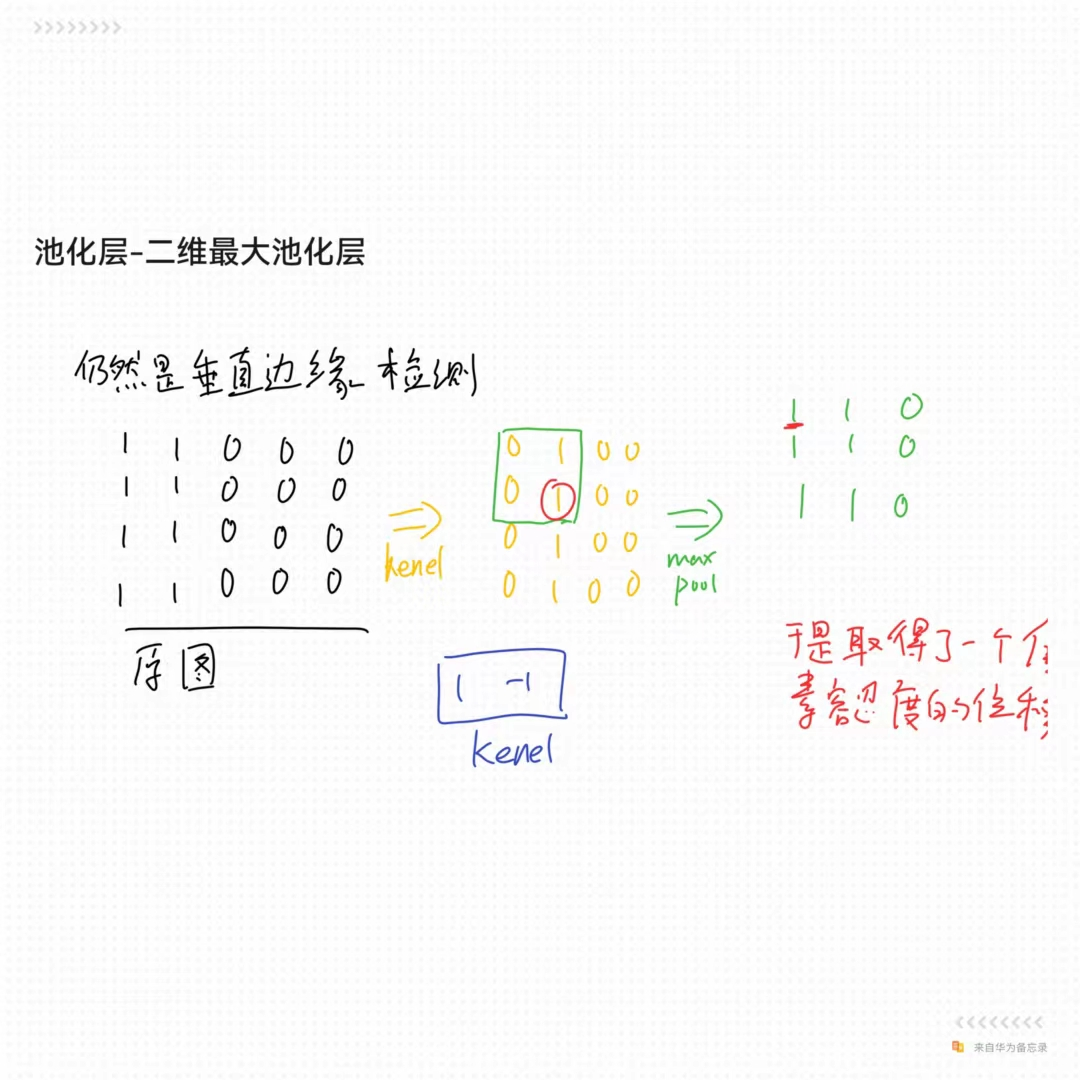 池化层-二维最大池化层
仍然是垂直边缘检测
1 1 0 0 0
1 1 0 0 0
1 1 0 0 0
1 1 0 0 0
原图
kenel
0 1 0 0
0 1 0 0
0 1 0 0
0 1 0 0
1 -1
kenel
max
pool
1 1 0
1 1 0
1 1 0
于是取得了一个
素容忍度的位移
来自华为备忘录